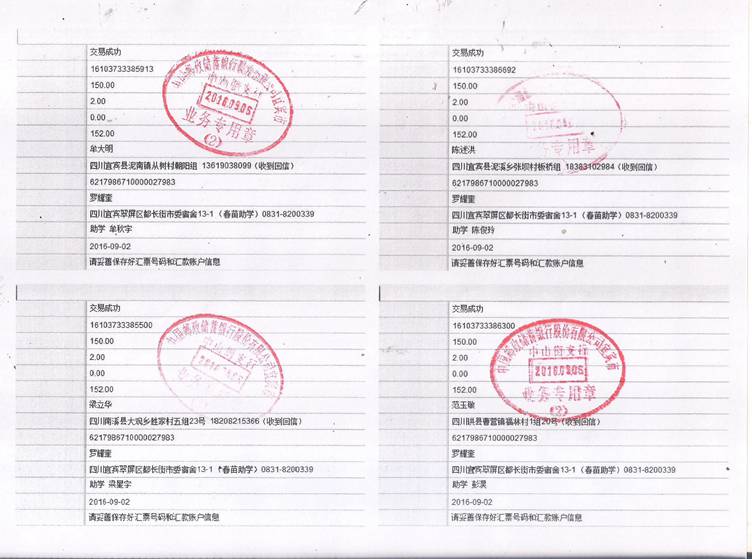 交易成功
16103733385913
150.00
2.00
0.00
152.00
牟大明
四川宜宾县泥南镇从树村朝阳组 13619038099（收到回信）
6217986710000027983
罗耀奎
四川宜宾翠屏区都长街市委宿舍13-1（春苗助学）0831-8200339
助学 牟秋宇
2016-09-02
请妥善保存好汇票号码和汇款账户信息
中国邮政储蓄银行股份有限公司宜宾市
中山街支行
2016.09.05
业务专用章
(2)
交易成功
16103733386692
150.00
2.00
0.00
152.00
陈述洪
四川宜宾县泥溪乡张坝村板桥组 18383102984（收到回信）
6217986710000027983
罗耀奎
四川宜宾翠屏区都长街市委宿舍13-1（春苗助学）0831-8200339
助学 陈俊玲
2016-09-02
请妥善保存好汇票号码和汇款账户信息
务专用章
交易成功
16103733385500
150.00
2.00
0.00
152.00
梁立华
四川南溪县大观乡姓家村五组23号 18208215366（收到回信）
6217986710000027983
罗耀奎
四川宜宾翠屏区都长街市委宿舍13-1（春苗助学）0831-8200339
助学 梁星宇
2016-09-02
请妥善保存好汇票号码和汇款账户信息
中国邮政储蓄银行股份有限公司宜宾市
中山街支行
交易成功
16103733386300
150.00
2.00
0.00
152.00
范玉敏
四川珙县曹营镇福林村1组20号（收到回信）
6217986710000027983
罗耀奎
四川宜宾翠屏区都长街市委宿舍13-1（春苗助学）0831-8200339
助学 彭灵
2016-09-02
请妥善保存好汇票号码和汇款账户信息
中国邮政储蓄银行股份有限公司宜宾市
中山街支行
2016.09.05
业务专用章
(2)